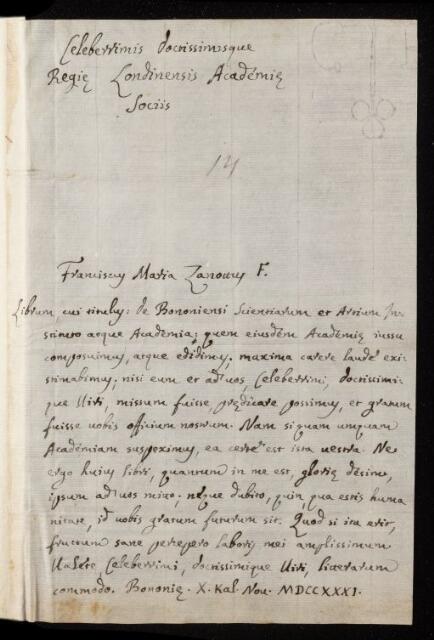 Celeberrimis doctissimisque
Regię Londinensis Academię
Sociis
14
Franciscus Maria Zanottus F.
Librum, cui titulus: de Bononiensi Scientiarum et Artium In-
stituto atque Academia; quem eiusdem Academię iussu
composuimus, atque edidimus, maxima carere laude exi-
stimabimus, nisi eum et ad uos, Celeberrimi, doctissimi-
que Uiri, missum fuisse prędicare possimus, et gratum
fuisse uobis officium nostrum. Nam si quam umquam
Academiam suspeximus, ea certe est ista uestra. Ne
ergo huius libri, quantum in me est, glorię desim,
ipsum ad uos mitto; neque dubito, quin, qua estis huma
nitate, id uobis gratum futurum sit. Quod si ita erit,
fructum sane percepero laboris mei amplissimum.
Ualete, Celeberrimi, doctissimique Uiri, litterarum
commodo. Bononię. X. Kal. Nou. MDCCXXXI.